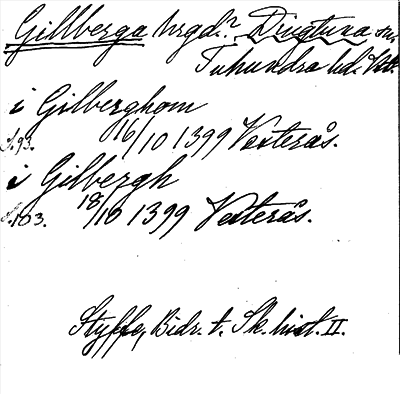 Gillberga hrgd. Dingtuna sn,
Tuhundra hd.
i Gilberghom
S. 93. 16/10 1399 Vesterås.
i Gilbergh
S. 103. 18/10 1399 Vesterås.
Styffe, Bidr. t. Sk. hist. II.